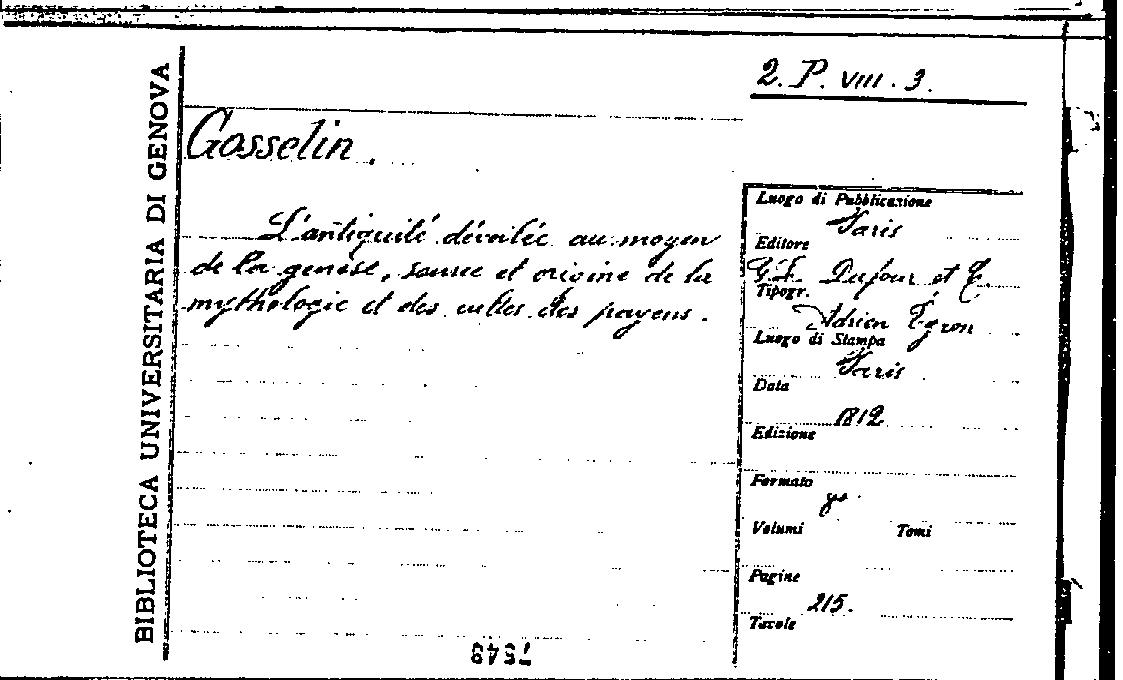 BIBLIOTECA UNIVERSITARIA DI GENOVA
2. P. VIII. 3.
Gosselin.
L'antiquité dévoilée au moyen
de la genèse, source et origine de la
mythologie et des cultes des payens.
Luogo di Pubblicazione
Paris
Editore
Dufour et C.
Tipogr.
Adrien Egron
Luogo di Stampa
Paris
Data
1812
Edizione
Formato
8º
Volumi Tomi
Pagine
215.
Tavole
7543